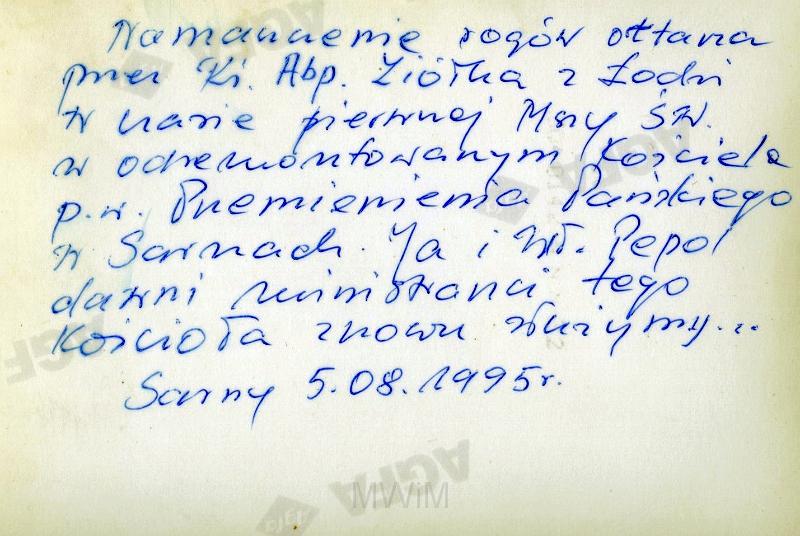 Namaszczenie rogów ołtarza
przez Ks. Abp. Ziółka z Łodzi
w czasie pierwszej Mszy Św.
w odremontowanym Kościele
p.w. Przemienienia Pańskiego
w Sarnach. Ja i Wł. Pepol
dawni ministranci tego
Kościoła znowu służymy...
Sarny 5.08.1995r.
AGFA
MWiM